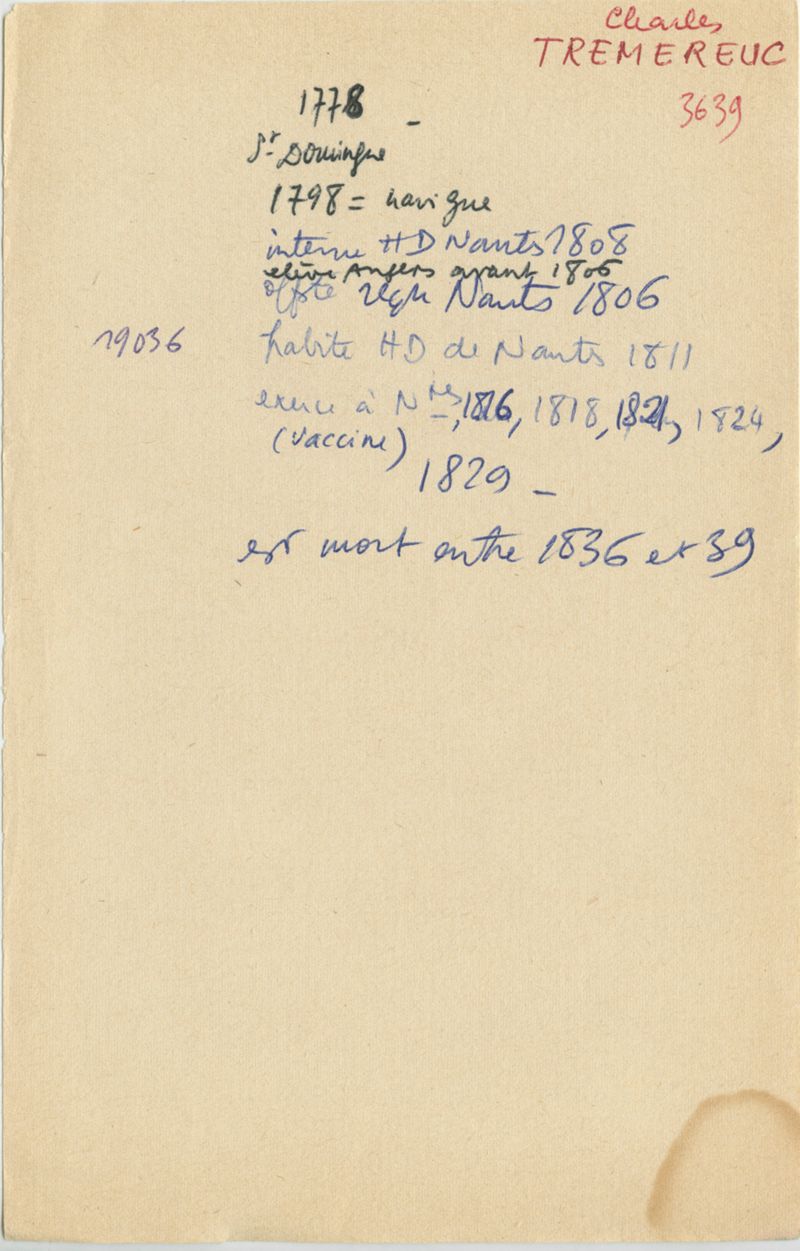 Charles
TREMEREUC
3639
1778 -
St Domingue
1798 = navigue
interne HD Nantes 1808
elève Angers avant 1806
Nantes 1806
19036 habite HD de Nantes 1811
exerce à Ntes, 1816, 1818, 1821, 1824,
(vaccine)
1829 -
est mort entre 1836 et 39